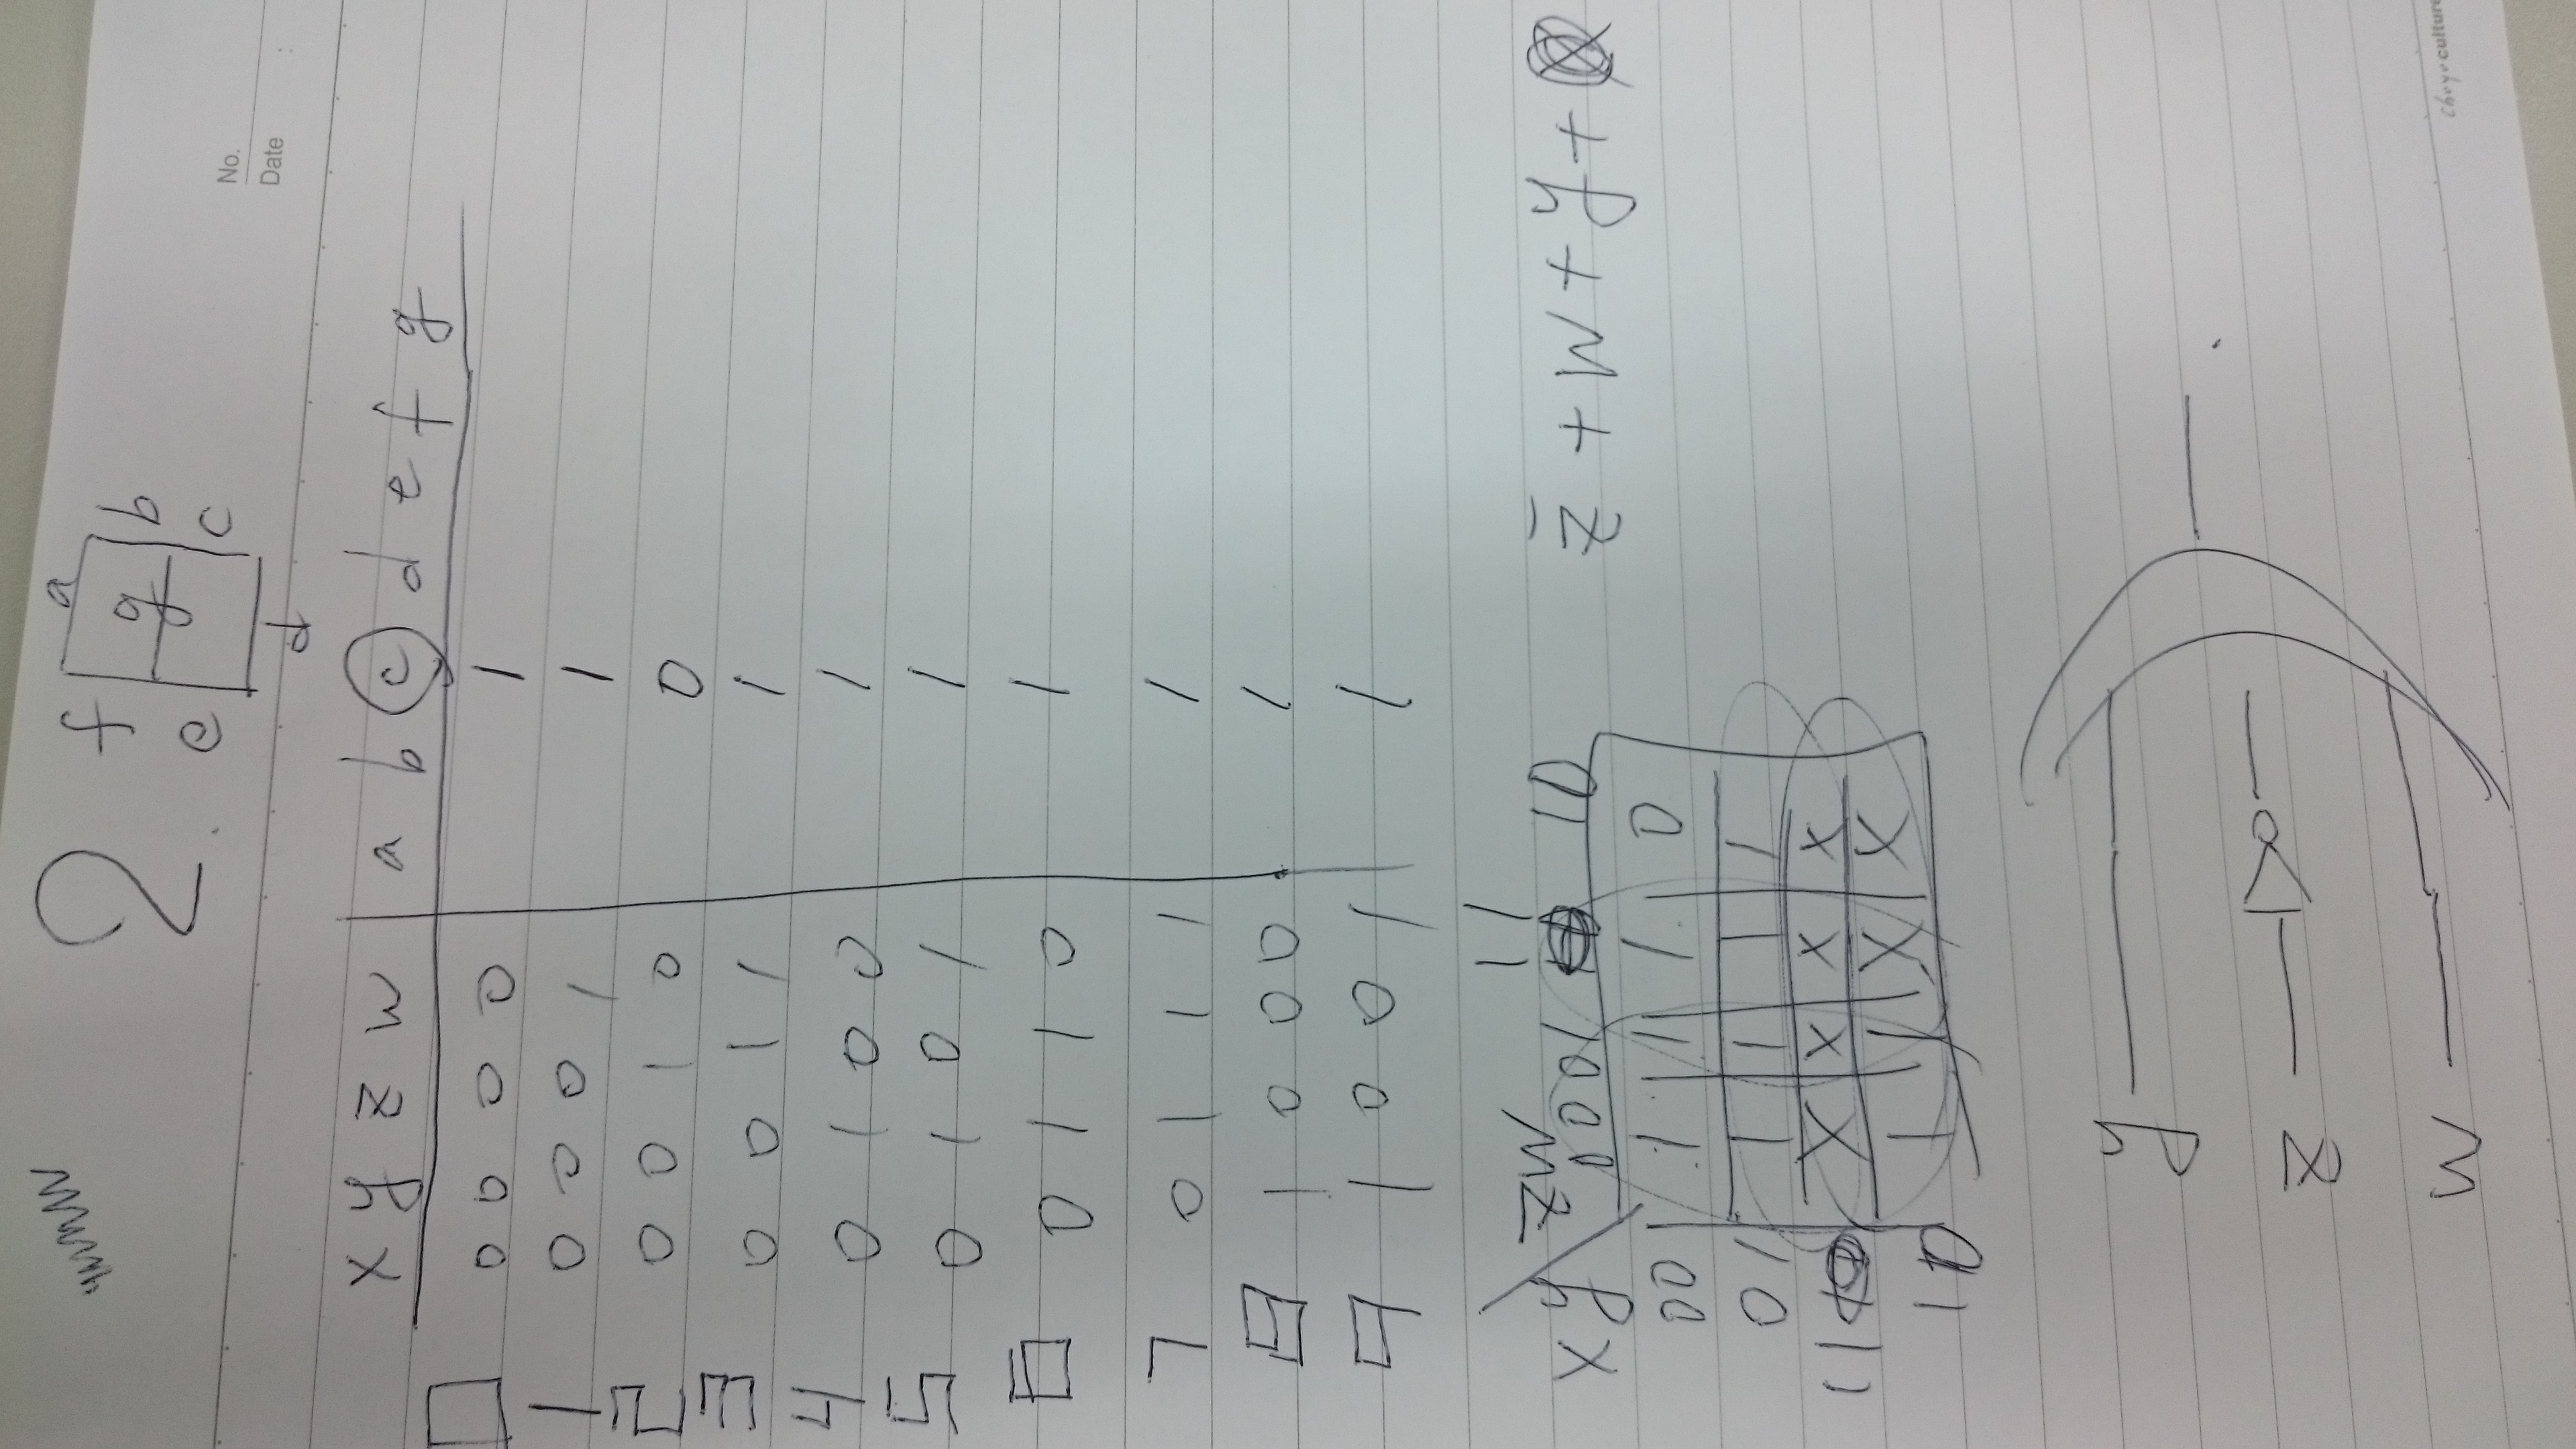 2.
a
f g b
e c
d
No.
Date :
x y z w a b c d e f g
0 0 0 0 0 1
1 0 0 0 1 1
2 0 0 1 0 0
3 0 0 1 1 1
4 0 1 0 0 1
5 0 1 0 1 1
6 0 1 1 0 1
7 0 1 1 1 1
8 1 0 0 0 1
9 1 0 0 1 1
xy \ zw 00 01 11 10
00 1 1 1 0
01 1 1 1 1
11 X X X X
10 1 1 X X
z̄ + w + y +
y
z
w
culture